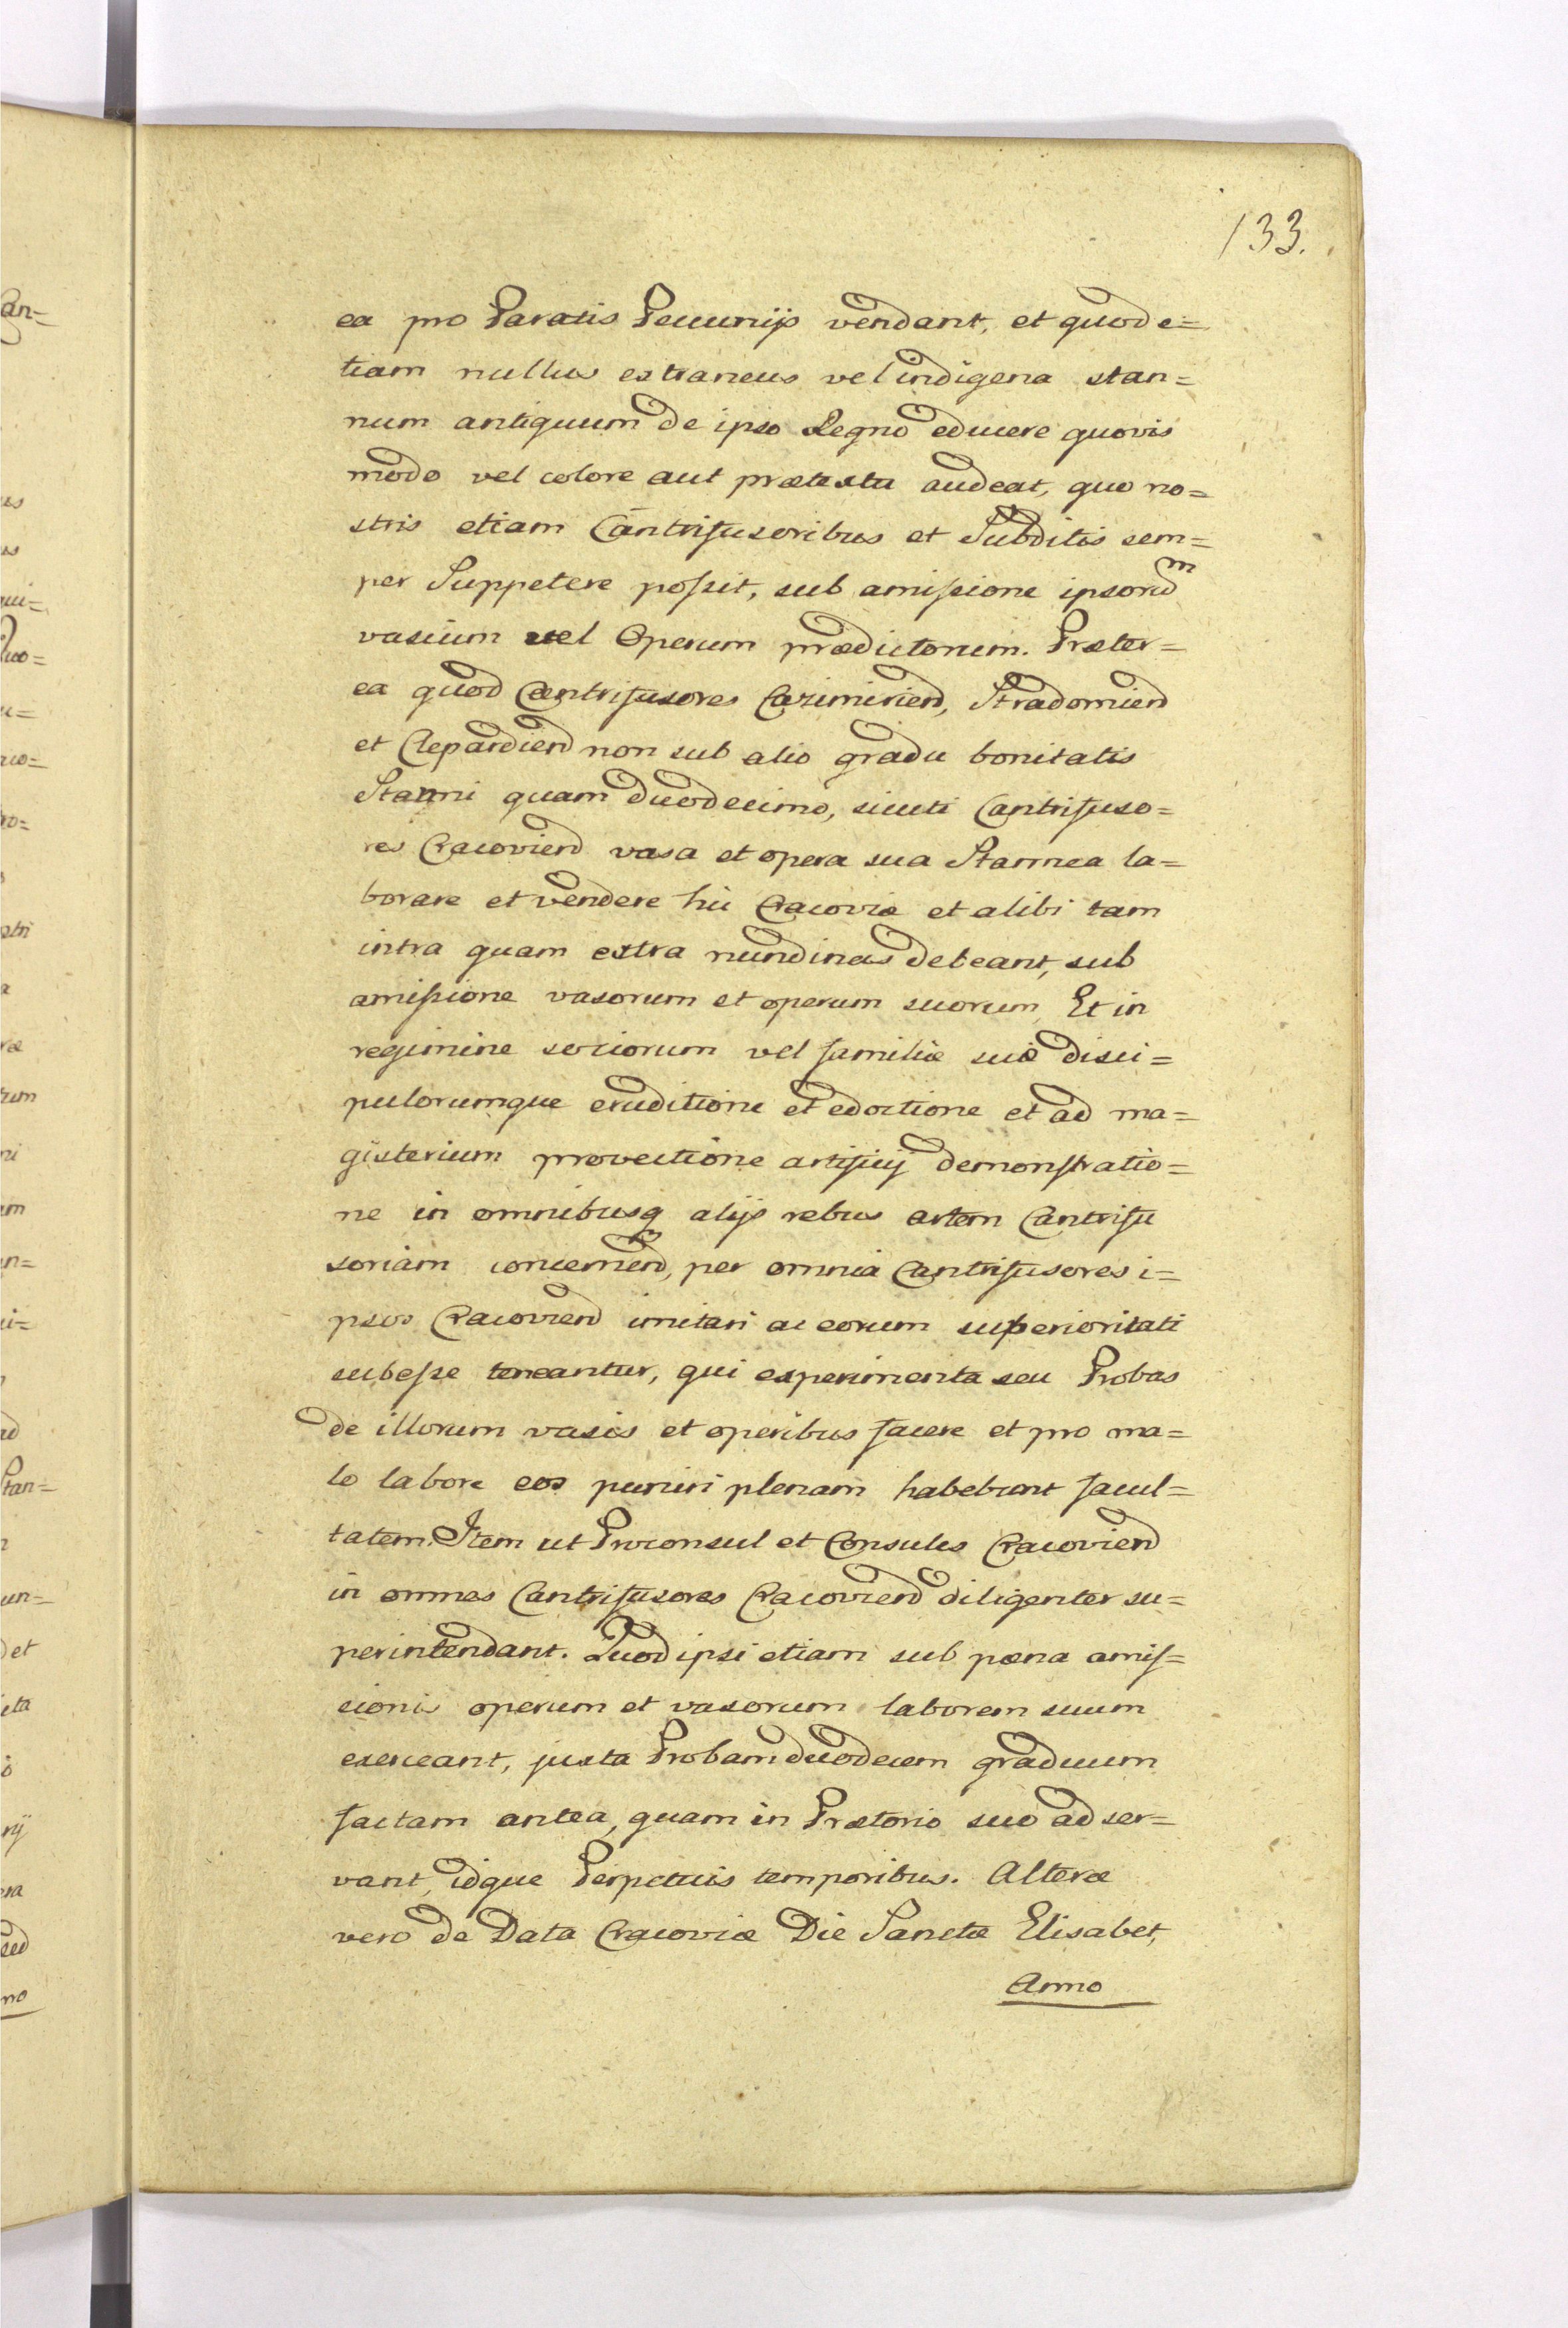 133.
ea pro Paratis Pecunijs vendant, et quod e=
tiam nullus extraneus vel indigena stan=
num antiquum de ipso Regno educere quovis
modo vel colore aut prætextu audeat, quo no=
stris etiam Cantrifusoribus et Subditis sem=
per Suppetere possit, sub amissione ipsorum
vasium vel Operum prædictorum. Præter=
ea quod Cantrifusores Cazimiriend, Stradomiend
et Clepardiend non sub alio gradu bonitatis
Stanni quam duodecimo, sicuti Cantrifuso=
res Cracoviend vasa et opera sua Stannea la=
borare et vendere hic Cracoviæ et alibi tam
intra quam extra nundinas debeant, sub
amissione vasorum et operum suorum, Et in
regimine sociorum vel familiæ suæ disci=
pulorumque eruditione et edoctione et ad ma=
gisterium provectione artificij demonstratio=
ne in omnibusq alijs rebus artem Cantrifu
soriam concernend, per omnia Cantrifusores i=
psos Cracoviend imitari ac eorum superioritati
subesse teneantur, qui experimenta seu Probas
de illorum vasis et operibus facere et pro ma=
lo labore eos puniri plenam habebunt facul=
tatem. Item ut Proconsul et Consules Cracoviend
in omnes Cantrifusores Cracoviend diligenter su=
perintendant. Quod ipsi etiam sub pæna amis=
sionis operum et vasorum laborem suum
exerceant, juxta Probam duodecem graduum
factam antea, quam in Prætorio suo adser=
vant, idque Perpetuis temporibus. Alteræ
vero de Data Cracoviæ Die Sanctæ Elisabet,
Anno